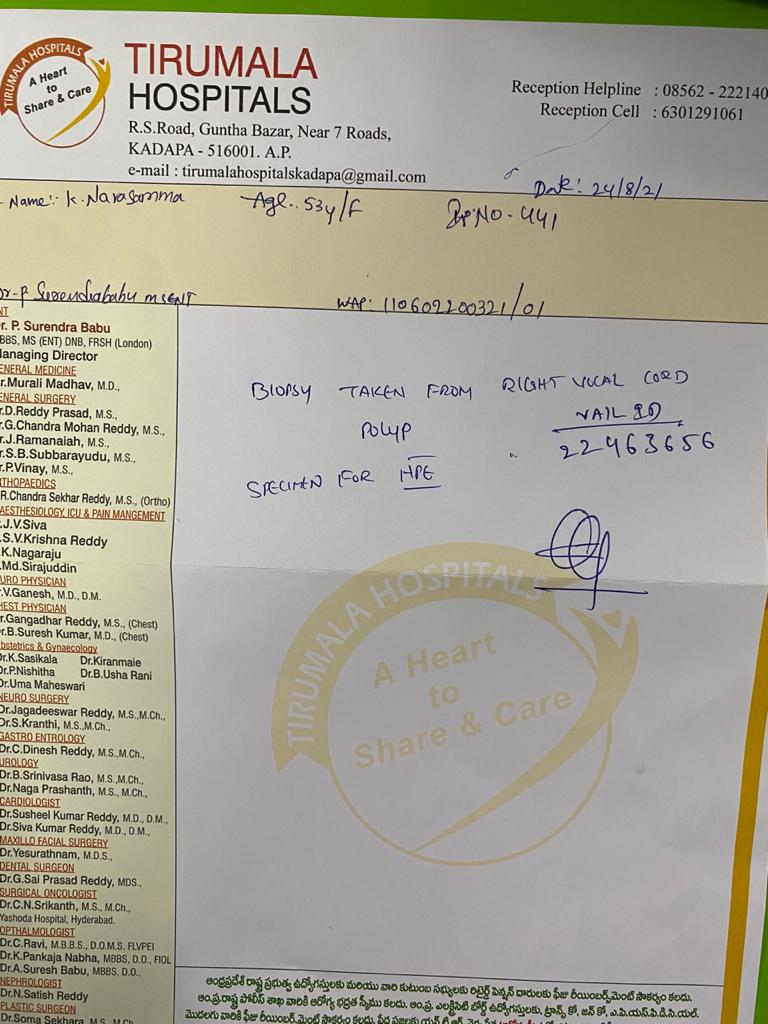 TIRUMALA HOSPITALS
A Heart
to
Share & Care
TIRUMALA
HOSPITALS
R.S.Road, Guntha Bazar, Near 7 Roads,
KADAPA - 516001. A.P.
e-mail : tirumalahospitalskadapa@gmail.com
Reception Helpline : 08562 - 222140
Reception Cell : 6301291061
Date: 24/8/21
Name:- K. Narasamma Age.. 53y/F IP NO - 441
Dr-P Surendrababu MSENT WAP: 110602200321/01
BIOPSY TAKEN FROM RIGHT VOCAL CORD
POLYP
SPECIMEN FOR HPE
22463656
NT
r. P. Surendra Babu
BBS, MS (ENT) DNB, FRSH (London)
anaging Director
ENERAL MEDICINE
r.Murali Madhav, M.D.,
ENERAL SURGERY
r.D.Reddy Prasad, M.S.,
r.G.Chandra Mohan Reddy, M.S.,
r.J.Ramanaiah, M.S.,
r.S.B.Subbarayudu, M.S.,
r.P.Vinay, M.S.,
RTHOPAEDICS
R.Chandra Sekhar Reddy, M.S., (Ortho)
AESTHESIOLOGY, ICU & PAIN MANGEMENT
.J.V.Siva
.S.V.Krishna Reddy
.K.Nagaraju
.Md.Sirajuddin
URO PHYSICIAN
.V.Ganesh, M.D., D.M.
HEST PHYSICIAN
r.Gangadhar Reddy, M.S., (Chest)
r.B.Suresh Kumar, M.D., (Chest)
bstetrics & Gynaecology
Dr.K.Sasikala Dr.Kiranmaie
Dr.P.Nishitha Dr.B.Usha Rani
Dr.Uma Maheswari
NEURO SURGERY
Dr.Jagadeeswar Reddy, M.S.,M.Ch.,
Dr.S.Kranthi, M.S.,M.Ch.,
GASTRO ENTROLOGY
Dr.C.Dinesh Reddy, M.S.,M.Ch.,
UROLOGY
Dr.B.Srinivasa Rao, M.S.,M.Ch.,
Dr.Naga Prashanth, M.S., M.Ch.,
CARDIOLOGIST
Dr.Susheel Kumar Reddy, M.D., D.M.,
Dr.Siva Kumar Reddy, M.D., D.M.,
MAXILLO FACIAL SURGERY
Dr.Yesurathnam, M.D.S.,
DENTAL SURGEON
Dr.G.Sai Prasad Reddy, MDS.,
SURGICAL ONCOLOGIST
Dr.C.N.Srikanth, M.S., M.Ch.,
Yashoda Hospital, Hyderabad.
OPTHALMOLOGIST
Dr.C.Ravi, M.B.B.S., D.O.M.S. FLVPEI
Dr.K.Pankaja Nabha, MBBS, D.O., FIOL
Dr.A.Suresh Babu, MBBS, D.O.,
NEPHROLOGIST
Dr.N.Satish Reddy
PLASTIC SURGEON
Dr.Soma Sekhara M.S. M.Ch
TIRUMALA HOSPITALS
A Heart
to
Share & Care
ఆంధ్రప్రదేశ్ రాష్ట్ర ప్రభుత్వ ఉద్యోగస్తులకు మరియు వారి కుటుంబ సభ్యులకు రిటైర్డ్ పెన్షన్ దారులకు ఫీజు రీయింబర్స్‌మెంట్ సౌకర్యం కలదు.
ఆం.ప్ర.రాష్ట్ర పోలీస్ శాఖ వారికి ఆరోగ్య భద్రత స్కీము కలదు. ఆం.ప్ర. ఎలక్ట్రిసిటీ బోర్డ్ ఉద్యోగస్తులకు, ట్రాన్స్ కో, జెన్ కో, ఎ.పి.యస్.పి.డి.సి.యల్.
మొదలగు వారికి ఫీజు రీయింబర్స్‌మెంట్ సౌకర్యం కలదు.